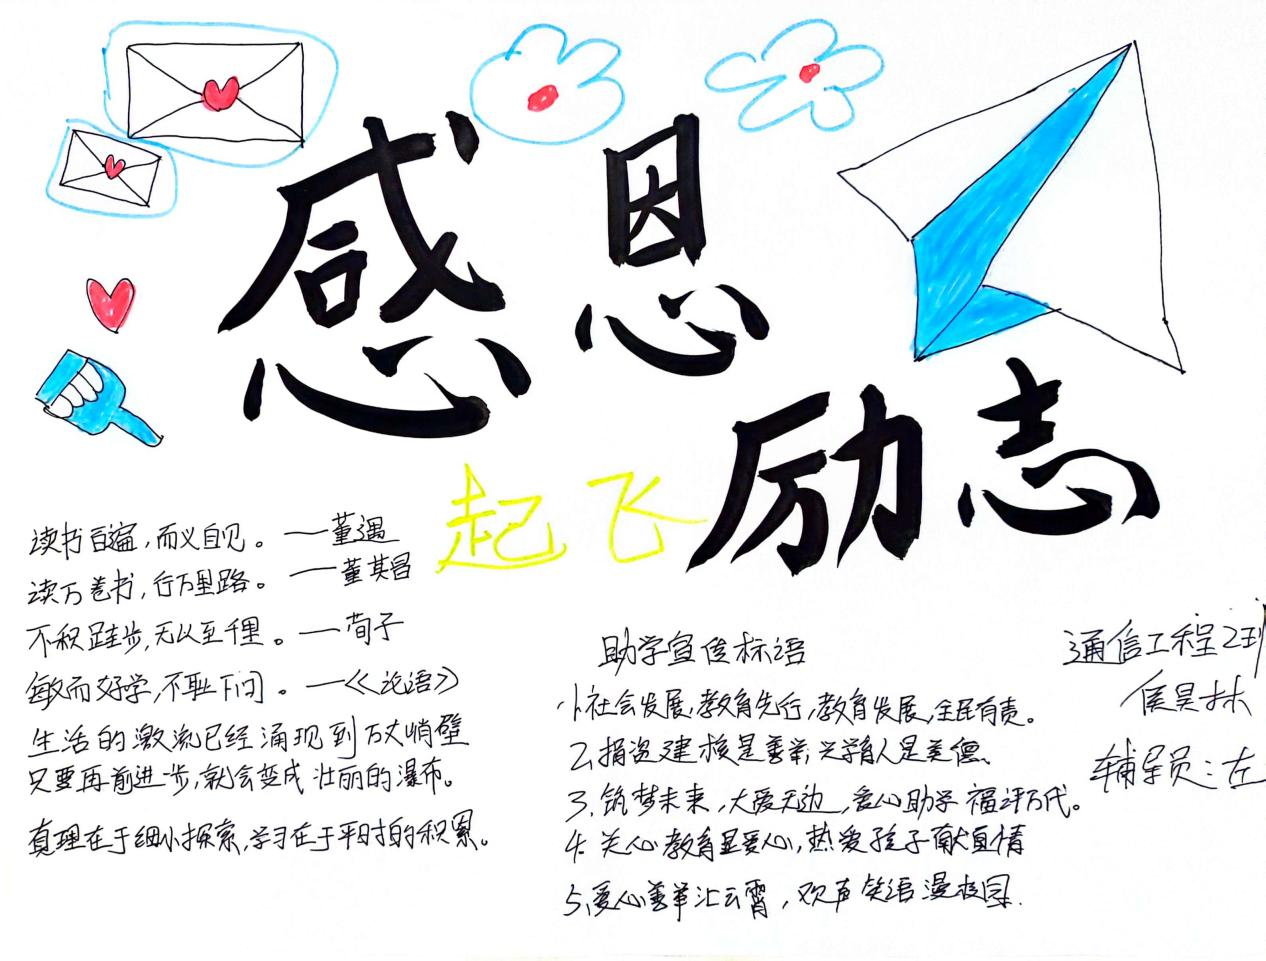 感恩
励志
起飞
读书百遍，而义自见。——董遇
读万卷书，行万里路。——董其昌
不积跬步，无以至千里。——荀子
敏而好学，不耻下问。——《论语》
生活的激流已经涌现到万丈悄壁
只要再前进一步，就会变成壮丽的瀑布。
真理在于细小探索，学习在于平时的积累。
助学宣传标语
1、社会发展，教育先行，教育发展，全民有责。
2、捐资建校是善举，兴学育人是美德、
3、筑梦未来，大爱无边，爱心助学 福泽万代。
4、关心教育显爱心，热爱孩子献真情
5、爱心善举汇云霄，欢声笑语漫校园.
通信工程2班
侯昊林
辅导员：左